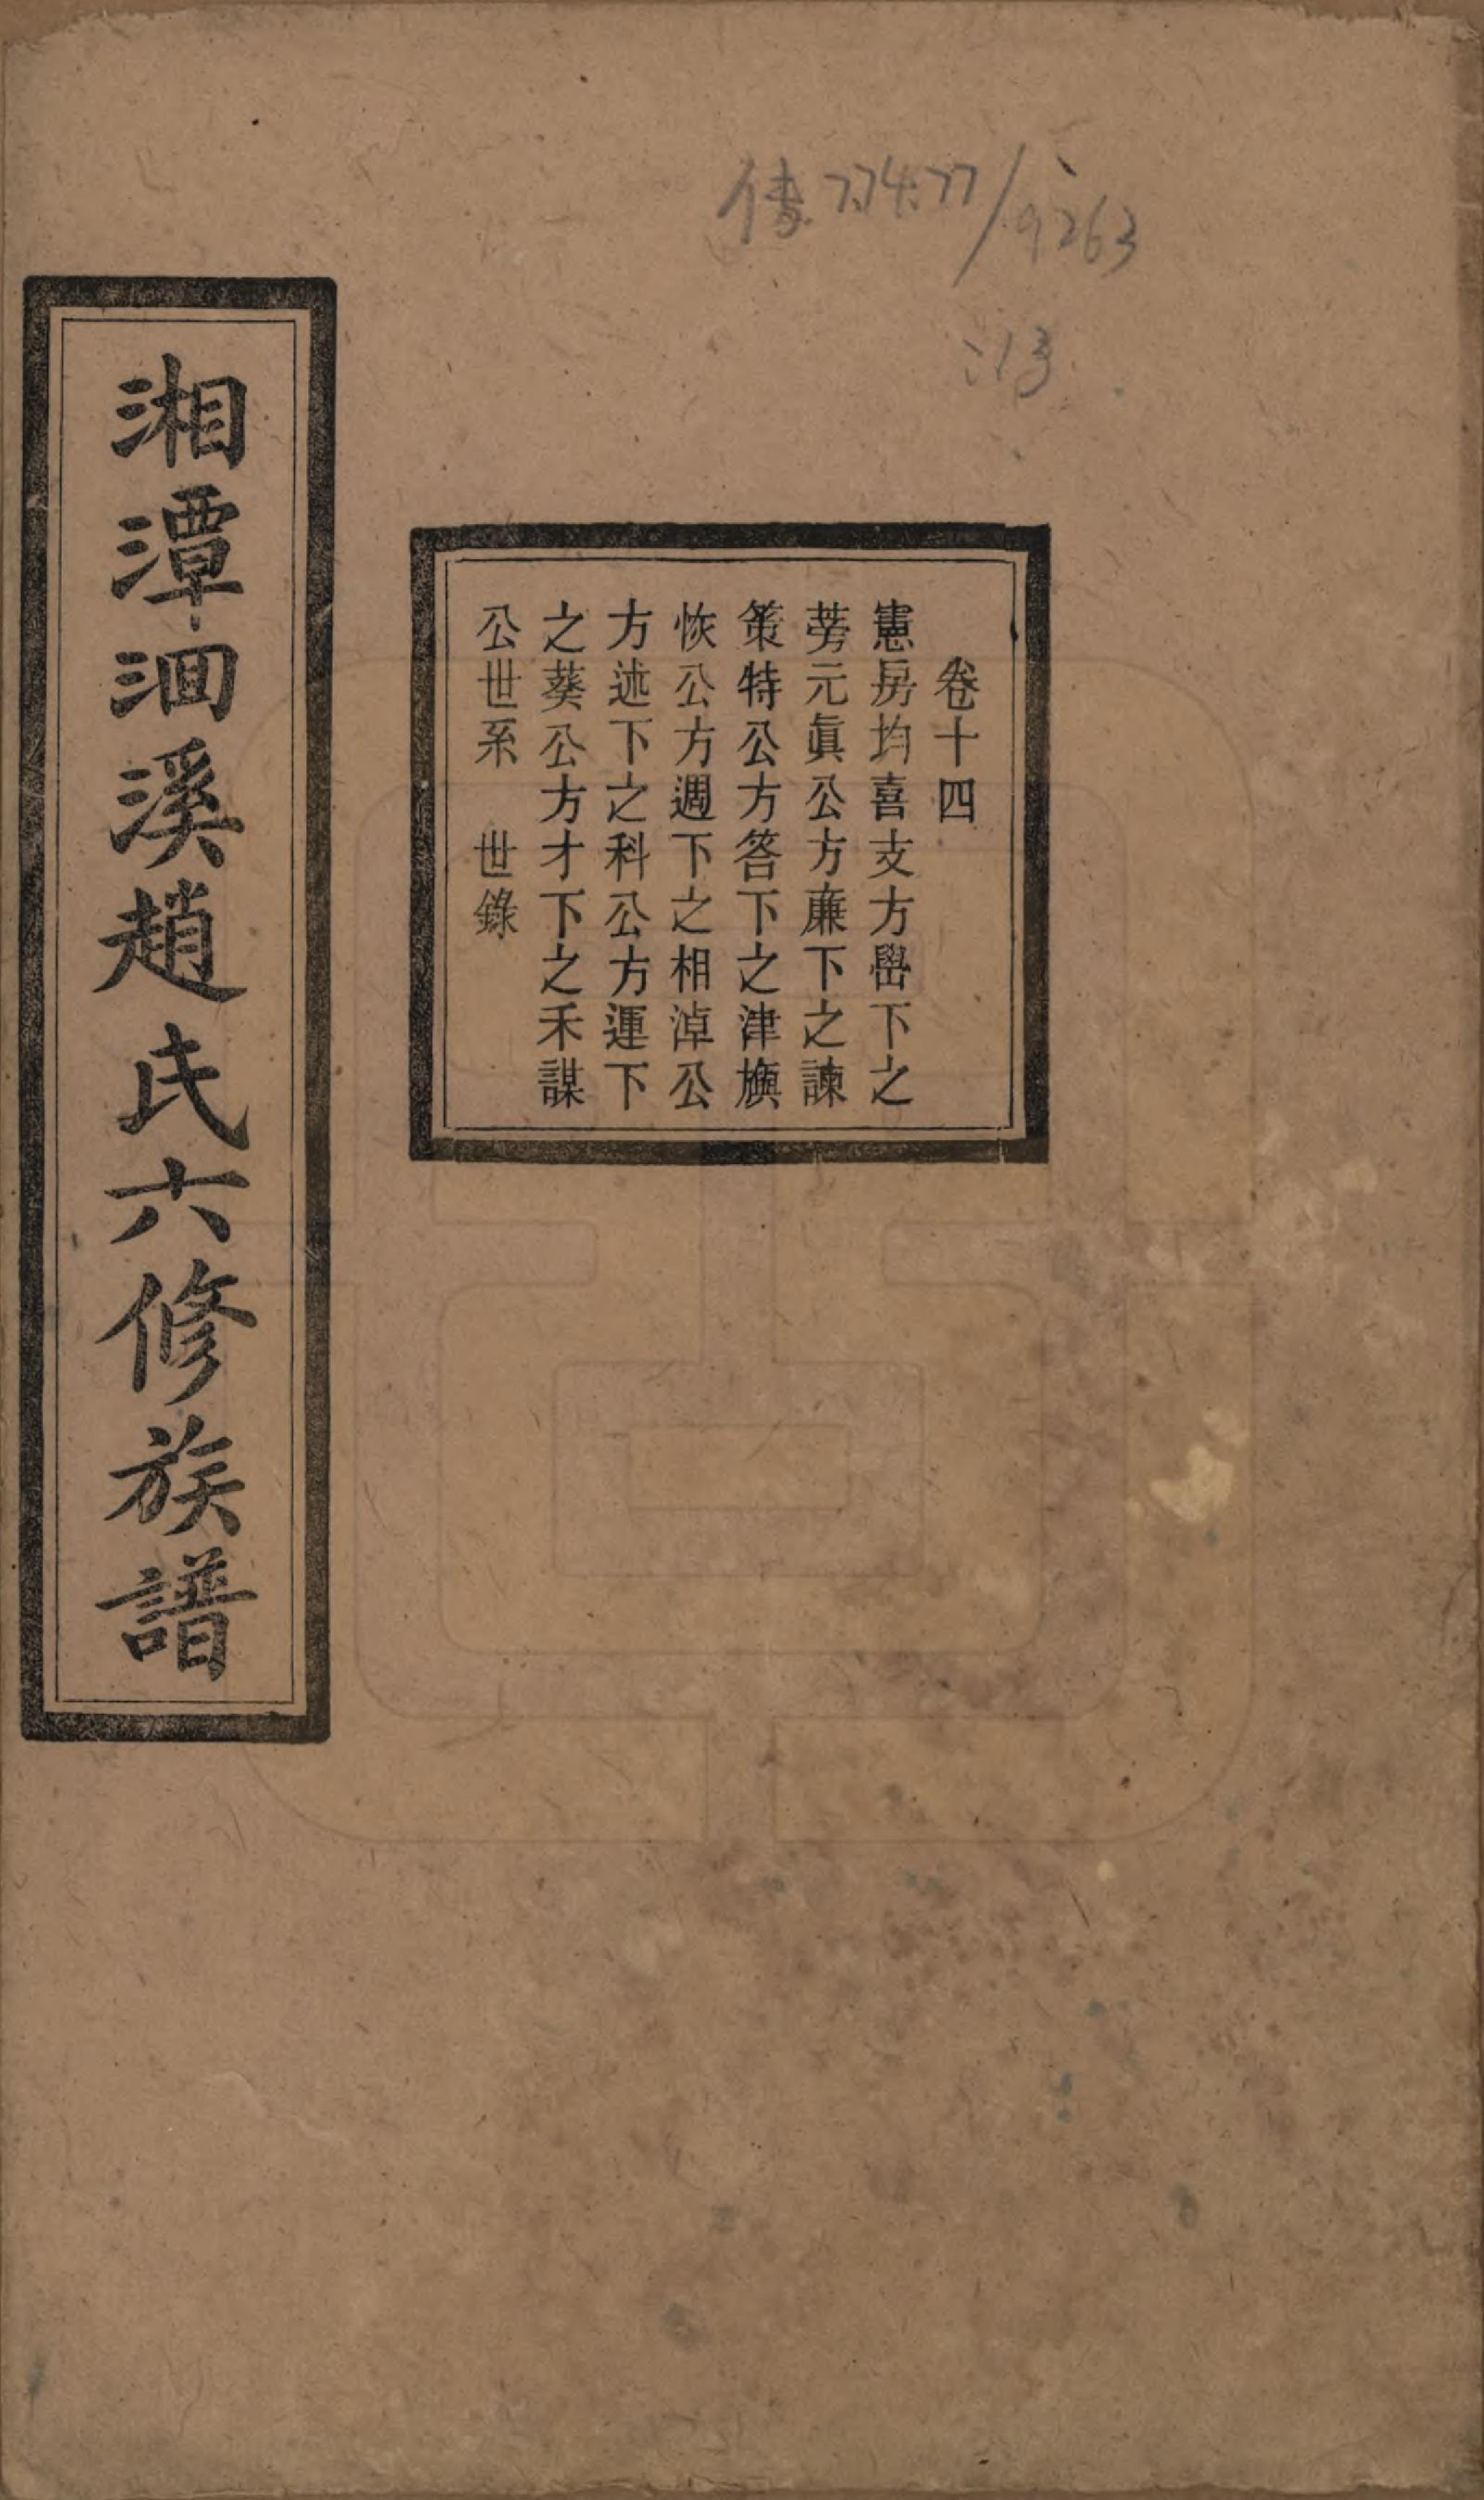 傳 774.77/9263
:13
卷十四
憲房均喜支方嚳下之
蒡元眞公方㢘下之諫
策特公方答下之津旟
恢公方週下之相淖公
方述下之科公方運下
之葵公方才下之禾謀
公世系　世錄
湘潭洄溪趙氏六修族譜